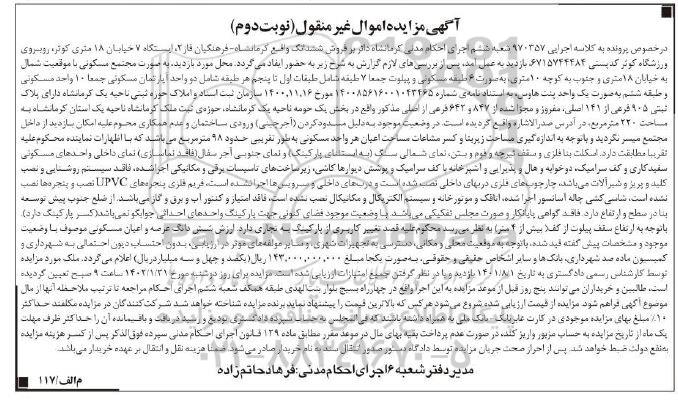 آگهی مزایده اموال غیر منقول (نوبت دوم)
درخصوص پرونده به کلاسه اجرایی ۹۷۰۳۵۷ شعبه ششم اجرای احکام مدنی کرمانشاه دائر بر فروش ششدانگ واقع کرمانشاه-فرهنگیان فاز۲، ایستگاه ۷ خیابان ۱۸ متری کوثر، روبروی
ورزشگاه کوثر کدپستی ۶۷۱۵۷۴۴۴۸۴ بازدید به عمل آمد، پس از بررسی‌های لازم گزارش به شرح زیر به حضور ایفاد می‌گردد. محل مورد بازدید، به صورت مجتمع مسکونی با موقعیت شمال
به خیابان ۱۸ متری و جنوب به کوچه ۱۰ متری، به صورت ۶ طبقه مسکونی و پیلوت جمعا ۷ طبقه شامل طبقات اول تا پنجم هر طبقه شامل دو واحد آپارتمان مسکونی جمعا ۱۰ واحد مسکونی
و طبقه ششم به صورت یک واحد پنت هاوس به استناد نامه‌ی شماره ۱۴۰۰۸۵۶۱۶۰۰۱۰۴۳۴۶۵ مورخ ۱۴۰۰،۱۱،۱۶ سازمان ثبت اسناد و املاک حوزه ثبتی ناحیه یک کرمانشاه دارای پلاک
ثبتی ۹۰۵ فرعی از ۱۴۱ اصلی، مفروز و مجزا شده از ۸۴۷ و ۶۴۲ فرعی از اصلی مذکور واقع در بخش یک حومه ناحیه یک کرمانشاه، حوزه‌ی ثبت ملک کرمانشاه ناحیه یک استان کرمانشاه به
مساحت ۲۲۰ مترمربع، در آدرس صدرالاشاره واقع گردیده است. در وضعیت موجود به دلیل مسدود کردن (آجرچینی) ورودی ساختمان و عدم همکاری محکوم علیه امکان بازدید از داخل
مجتمع میسر نگردید و باتوجه به اندازه‌گیری مساحت زیربنا و کسر مشاعات مساحت اعیان هر واحد مسکونی به طور تقریبی حدود ۹۸ مترمربع می باشد که با اظهارات نماینده محکوم علیه
تقریبا مطابقت دارد. اسکلت بنا فلزی و سقف تیرچه و فوم و بتن، نمای شمالی سنگ (به استثنای پارکینگ) و نمای جنوبی آجر سفال (فاقد نماسازی) نمای داخلی واحدهای مسکونی
سفیدکاری و کف سرامیک، دوخوابه و هال و پذیرایی و آشپزخانه با کف سرامیک و پوشش دیوارها کاشی، زیرساخت‌های تاسیسات برقی و مکانیکی اجرا شده، فاقد سیستم روشنایی و نصب
کلید و پریز و شیرآلات می‌باشد، چارچوب‌های فلزی درب‌های داخلی نصب شده است و درب‌های داخلی و سرویس‌ها اجرا نشده است، فریم فلزی پنجره‌های UPVC نصب و پنجره‌ها نصب
نشده است، شاسی کشی چاله آسانسور اجرا شده، اتاقک و موتورخانه و سیستم الکتریکال و مکانیکال نصب نشده است، فاقد امتیاز و کنتور آب و برق و گاز می‌باشد. از ضلع جنوب پیش توسعه
بنا در سطح و ارتفاع دارد. فاقد گواهی پایانکار و صورت مجلس تفکیکی می‌باشد. با وضعیت موجود فضای کنونی جهت پارکینگ واحدهای احداثی جوابگو نمی‌باشد (کسر پارکینگ دارد).
باتوجه به ارتفاع سقف پیلوت از کف (بیش از ۴ متر) به نظر می‌رسد محکوم علیه قصد تغییر کاربری از پارکینگ به تجاری دارد. ارزش شش دانگ عرصه و اعیان مسکونی موصوف با وضعیت
موجود و مشخصات پیش گفته قید شده، باتوجه به موقعیت محلی و مکانی، دسترسی به تجهیزات شهری، و سایر مولفه‌های موثر در ارزیابی، بدون احتساب دیون احتمالی به شهرداری و
کمیسیون ماده صد شهرداری، بانک‌ها و سایر اشخاص حقیقی و حقوقی، به‌صورت یکجا مبلغ ۱۴۳،۰۰۰،۰۰۰،۰۰۰ ریال (یکصد و چهل و سه میلیارد ریال) اعلام می‌گردد. ملک مورد مزایده
توسط کارشناس رسمی دادگستری به تاریخ ۱۴۰۱/۸/۱ بازدید و با در نظر گرفتن جمیع امتیازات ارزیابی شده است. مزایده برای روز دوشنبه مورخ ۱۴۰۲/۱/۳۱ ساعت ۹ صبح تعیین گردیده
است، طالبین و خریداران می توانند پنج روز قبل از موعد مزایده به این اجرا واقع در چهارراه بسیج بلوار بنت‌الهدی طبقه همکف شعبه ششم اجرای احکام مراجعه تا ترتیب ملاحظه آنها از مال
موضوع آگهی فراهم شود. مزایده از قیمت ارزیابی شده شروع می‌شود هر کس که بالاترین قیمت را پیشنهاد نماید برنده مزایده شناخته خواهد شد. شرکت‌کنندگان در مزایده مکلفند حداکثر
۱۰٪ مبلغ بهای مزایده موجودی در کارت عابربانک-بانک ملی به همراه داشته باشند که فی‌المجلس به حساب سپرده دادگستری تودیع و ارسید دریافت و باقیمانده آن را حداکثر ظرف مهلت
یک ماه از تاریخ مزایده به حساب مزبور واریز کند، در صورت عدم پرداخت بقیه بهای مال در موعد مقرر مطابق ماده ۱۲۹ قانون اجرای احکام مدنی سپرده فوق‌الذکر پس از کسر هزینه مزایده
به‌نفع دولت ضبط خواهد شد. پس از احراز صحت جریان مزایده توسط دادگاه دستور صدور انتقال سند به نام خریدار صادر می‌شود. ضمنا هزینه نقل و انتقال بر عهده خریدار می‌باشد.
مدیر دفتر شعبه ۶ اجرای احکام مدنی: فرهاد حاتم‌زاده
م‌الف/۱۱۷